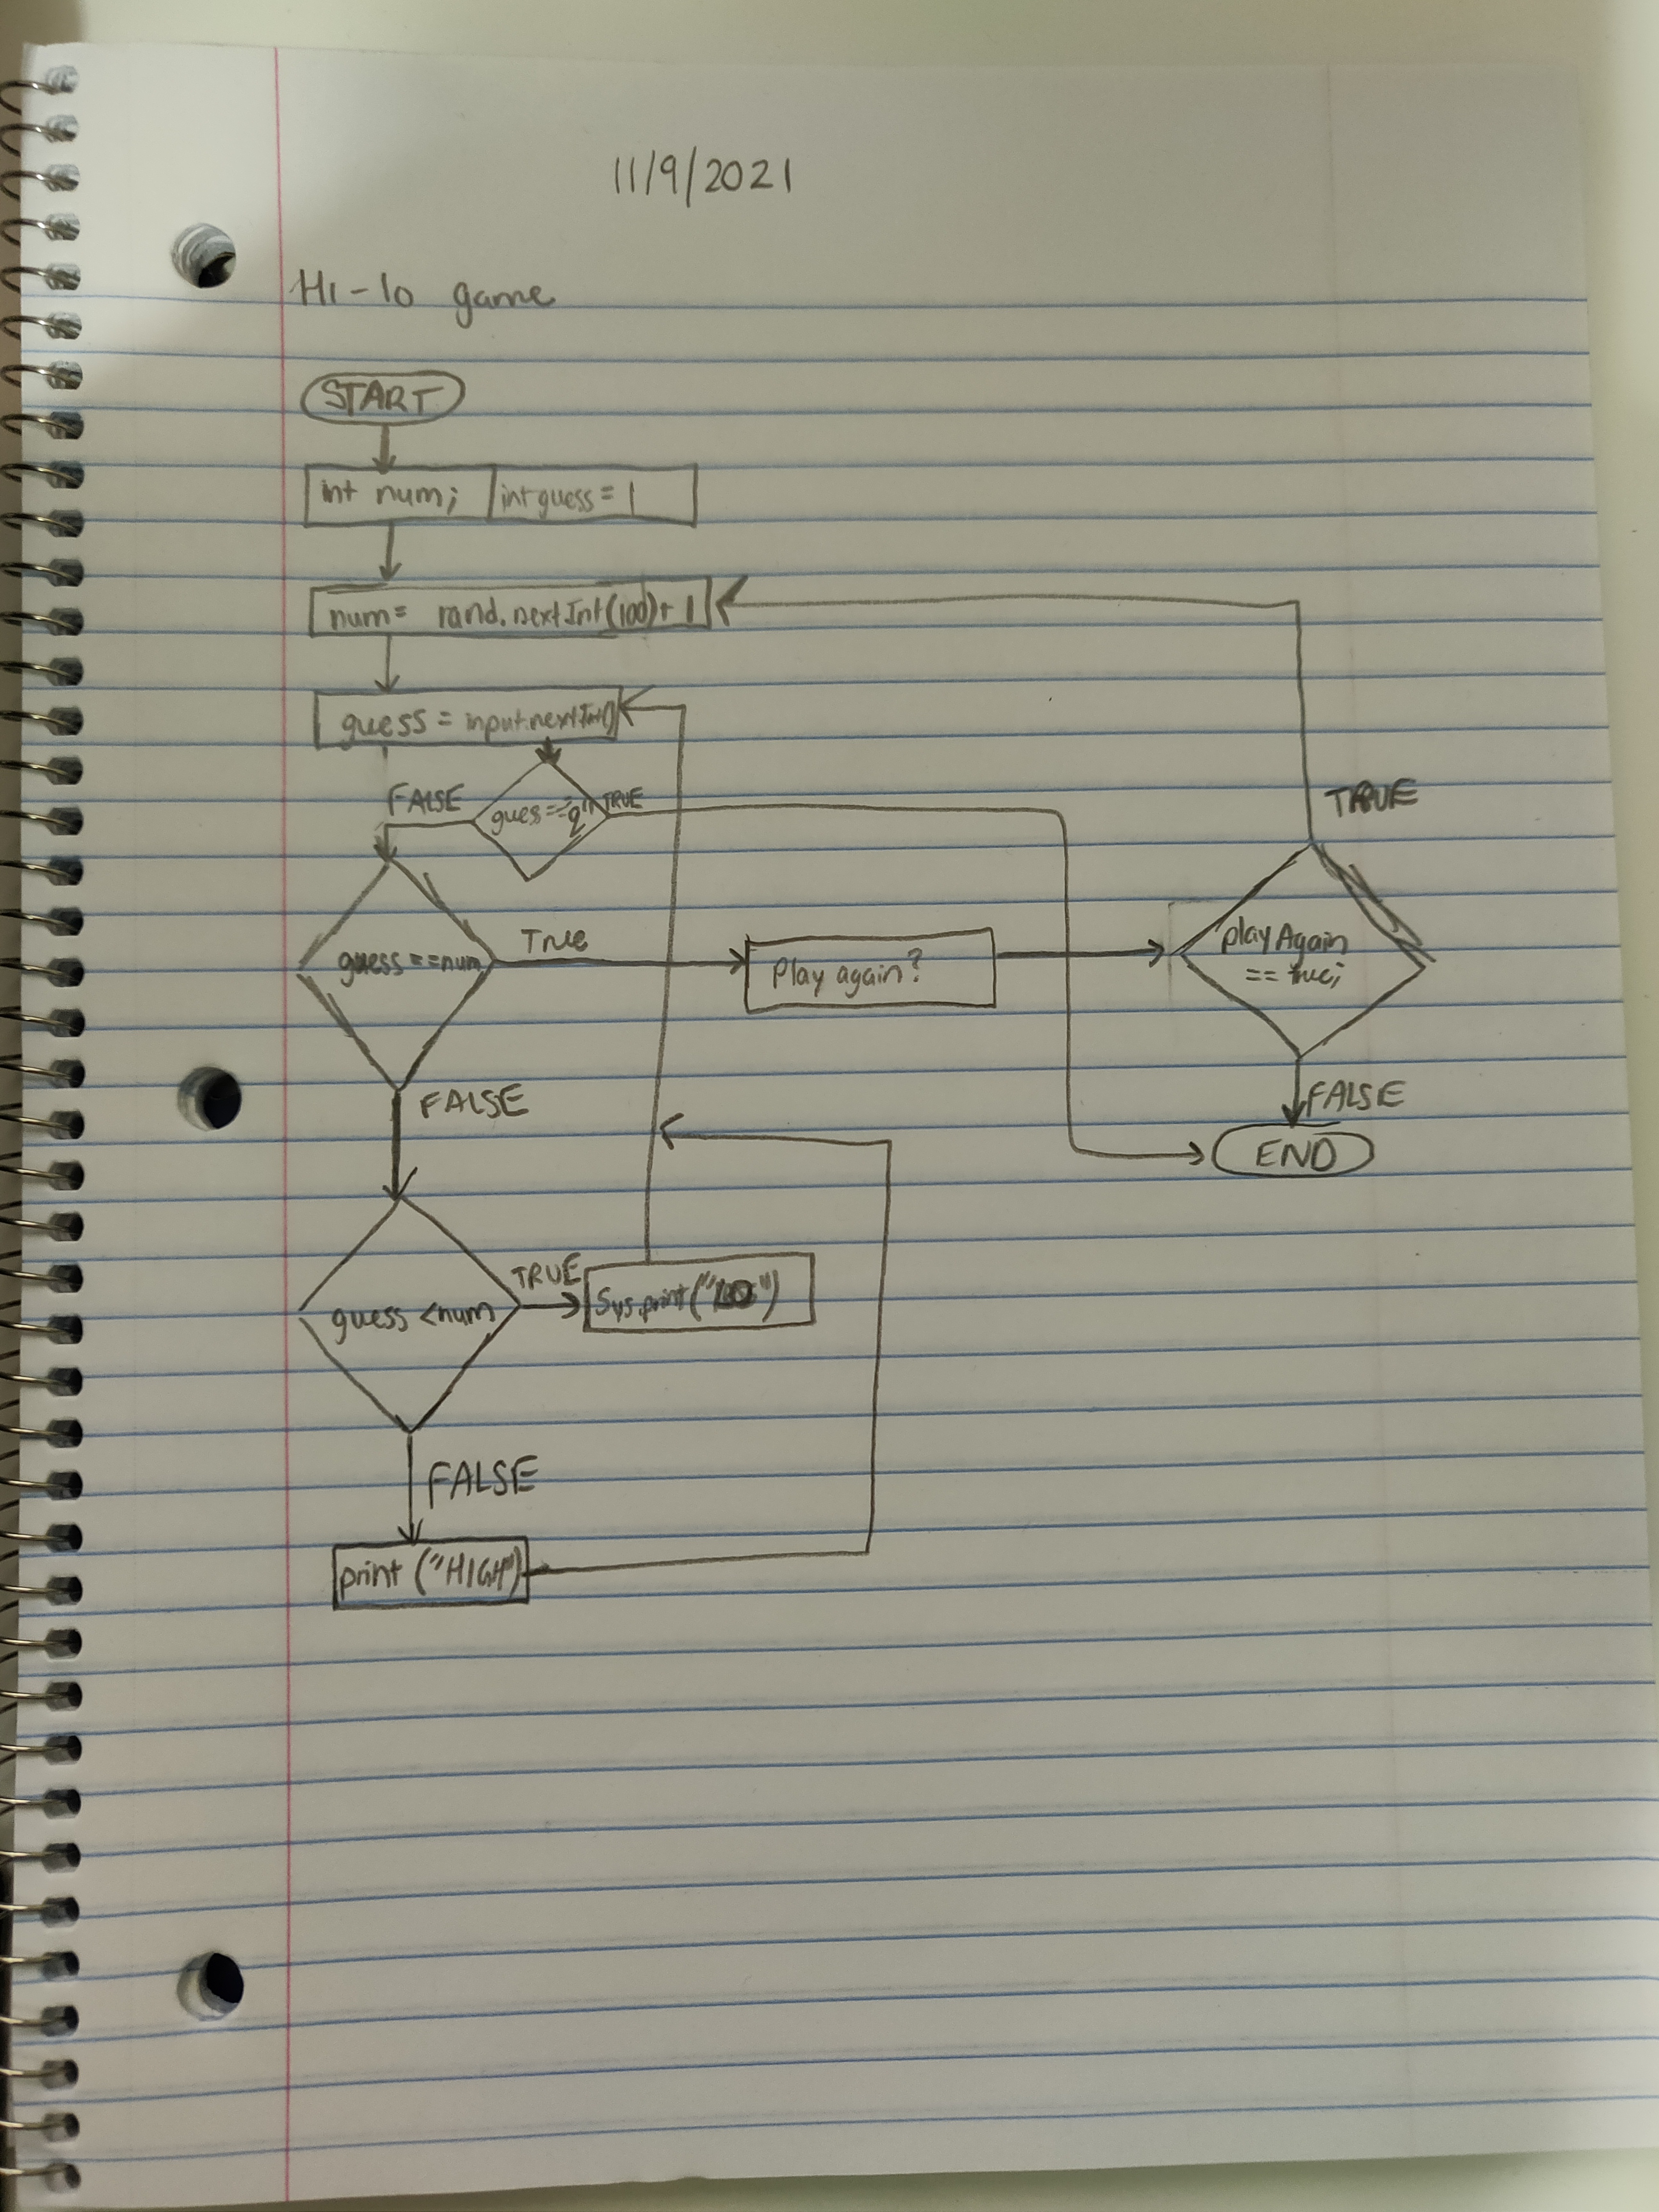 11/9/2021
Hi-lo game
START
int num; int guess = 1
num = rand.nextInt(100)+1
guess = input.nextInt()
FALSE guess=="q" TRUE
TRUE
guess==num True Play again? playAgain
== true;
FALSE FALSE
END
guess <num TRUE Sys.print("LO")
FALSE
print ("HIGH")